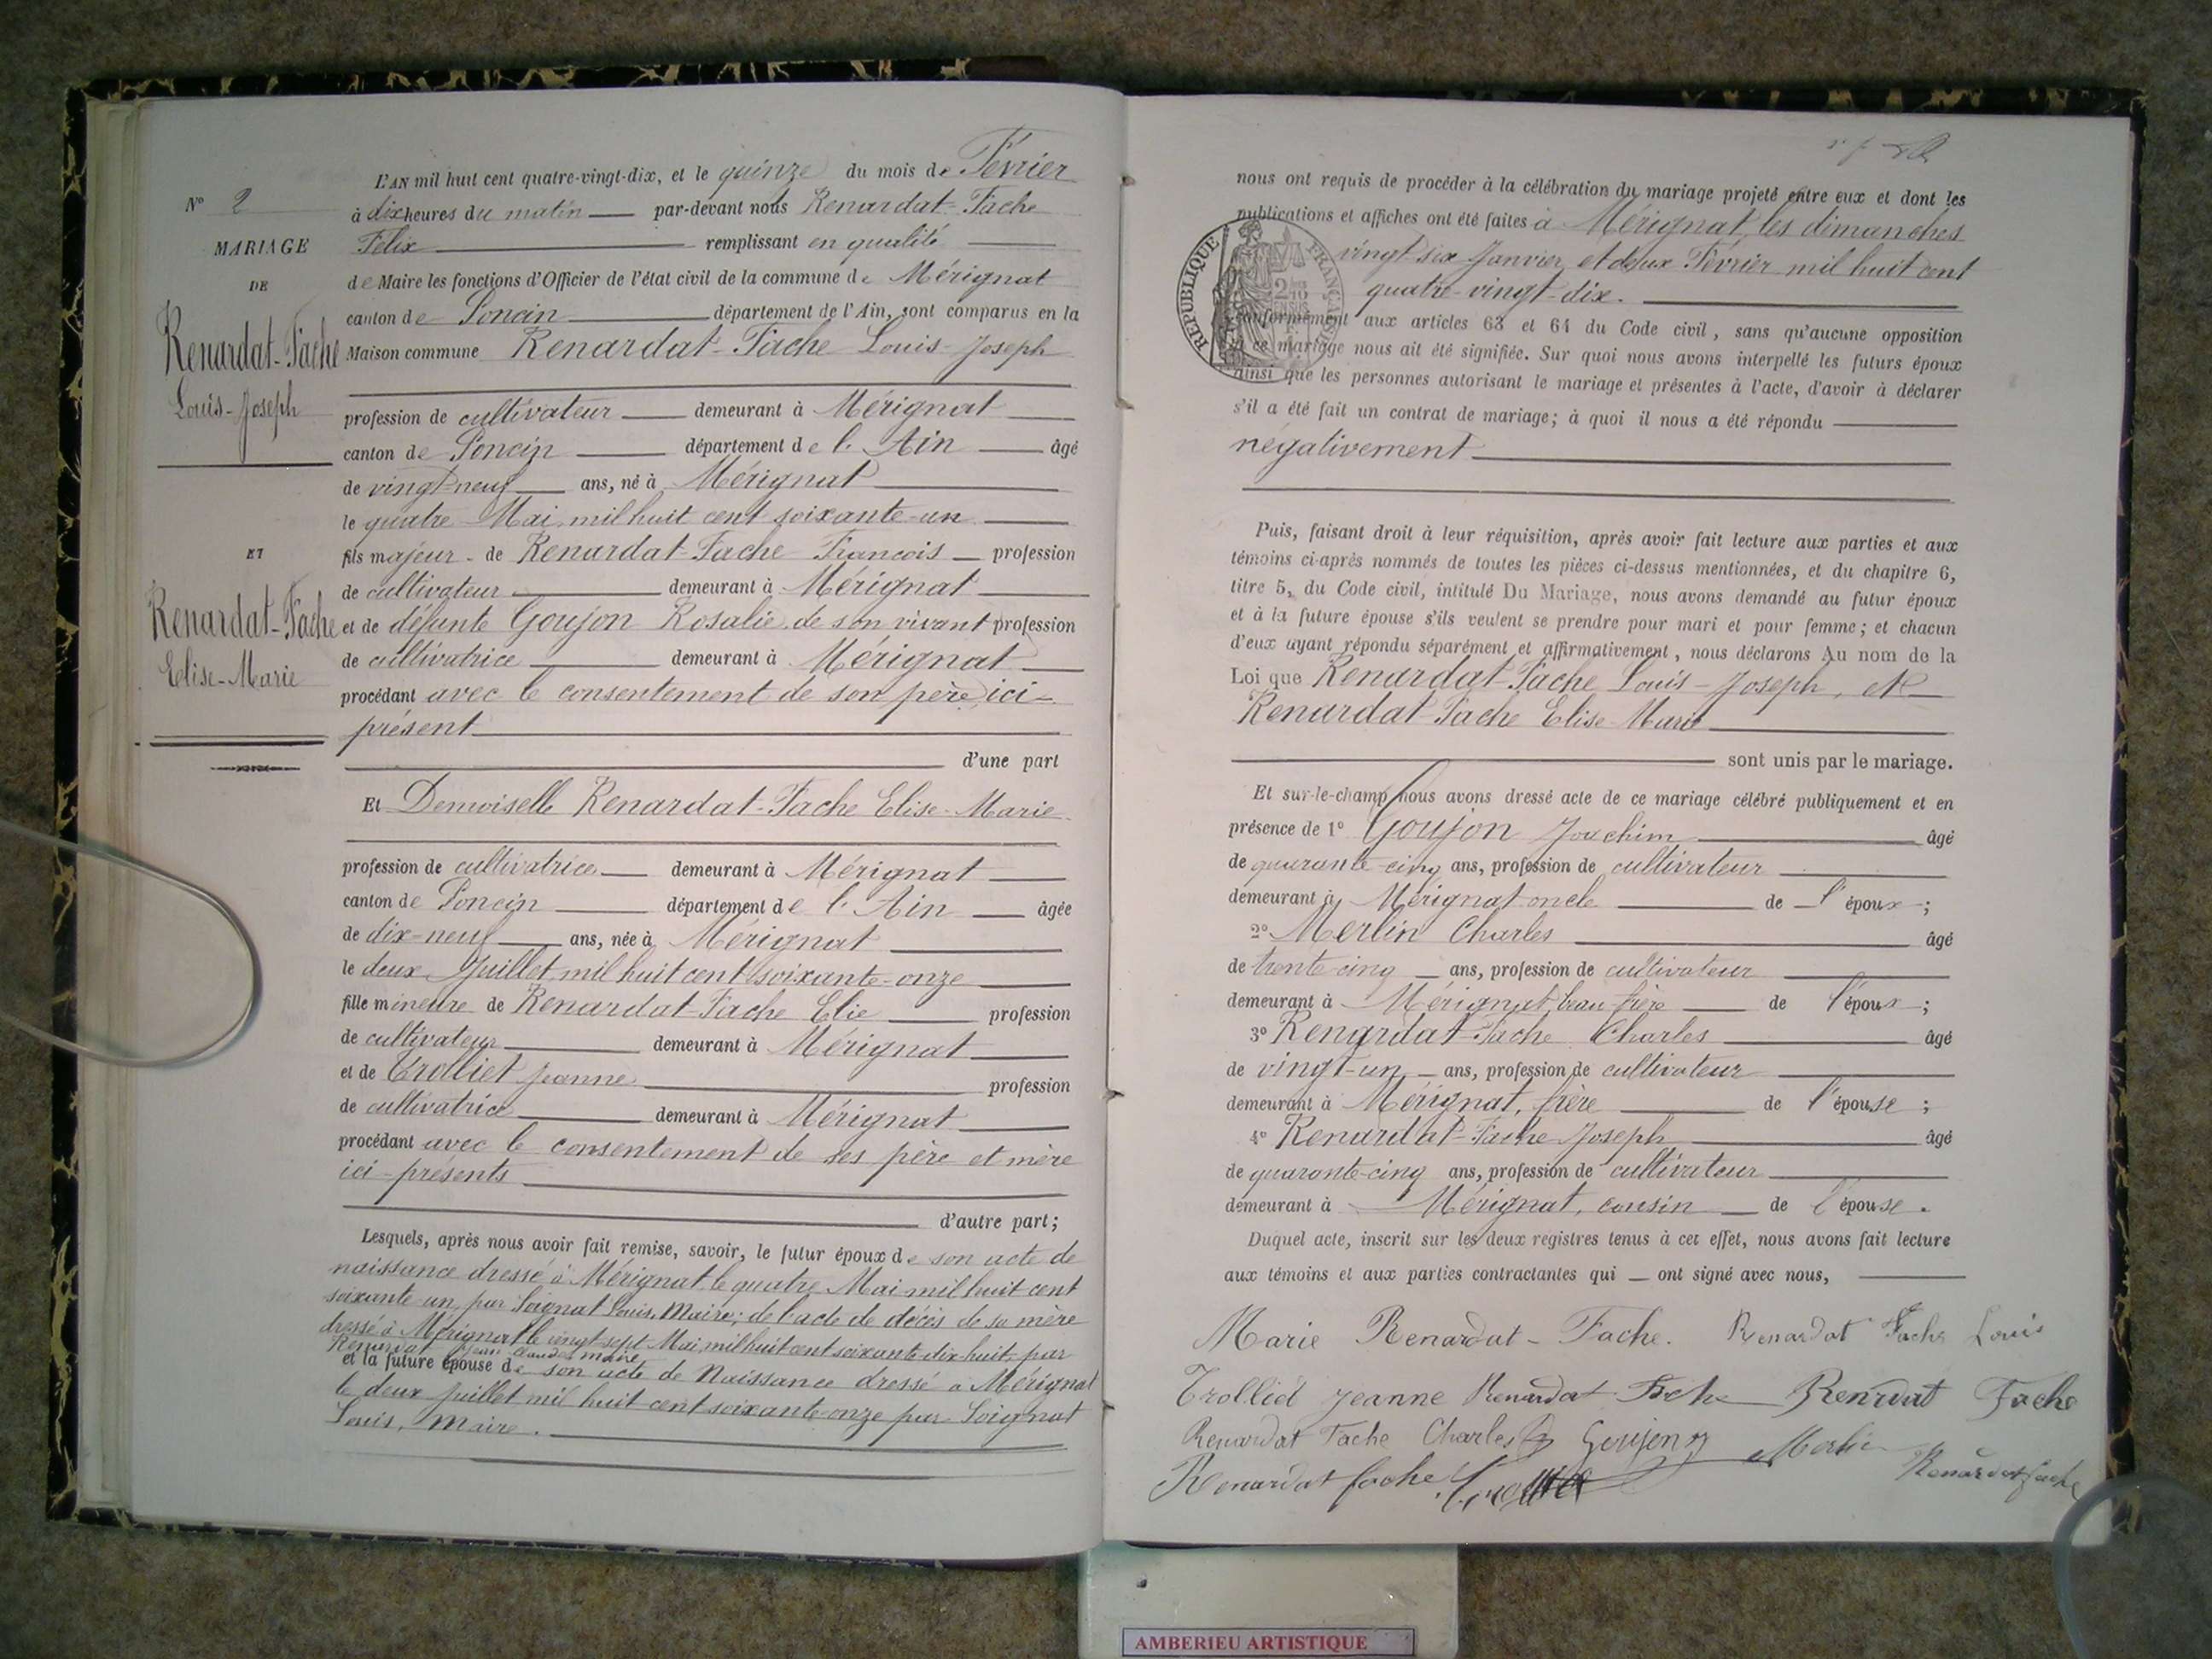 L'AN mil huit cent quatre-vingt-dix, et le quinze du mois de Février
N° 2
à dix heures du matin par-devant nous Renardat-Fache
MARIAGE
Félix remplissant en qualité
DE
de Maire les fonctions d'Officier de l'état civil de la commune de Mérignat
canton de Poncin département de l'Ain, sont comparus en la
Renardat-Fache
Maison commune Renardat-Fache Louis-Joseph
Louis-Joseph
profession de cultivateur demeurant à Mérignat
canton de Poncin département de l'Ain âgé
de vingt-neuf ans, né à Mérignat
le quatre Mai mil huit cent soixante-un
ET
fils majeur de Renardat-Fache Francois profession
de cultivateur demeurant à Mérignat
Renardat-Fache
et de défunte Goujon Rosalie de son vivant profession
Elise-Marie
de cultivatrice demeurant à Mérignat
procédant avec le consentement de son père, ici-
présent
d'une part
Et Demoiselle Renardat-Fache Elise-Marie
profession de cultivatrice demeurant à Mérignat
canton de Poncin département de l'Ain âgée
de dix-neuf ans, née à Mérignat
le deux Juillet mil huit cent soixante-onze
fille mineure de Renardat-Fache Elie profession
de cultivateur demeurant à Mérignat
et de Trolliet Jeanne profession
de cultivatrice demeurant à Mérignat
procédant avec le consentement de ses père et mère
ici-présents
d'autre part;
Lesquels, après nous avoir fait remise, savoir, le futur époux de son acte de
naissance dressé à Mérignat le quatre Mai mil huit cent
soixante-un par Soignat Louis, Maire; de l'acte de décès de sa mère
dressé à Mérignat le vingt-sept Mai mil huit cent soixante-dix-huit, par
Renardat Jean Claude maire
et la future épouse de son acte de Naissance dressé à Mérignat
le deux Juillet mil huit cent soixante-onze par Soignat
Louis, Maire.
nous ont requis de procéder à la célébration du mariage projeté entre eux et dont les
publications et affiches ont été faites à Mérignat, les dimanches
vingt six Janvier et deux Février mil huit cent
quatre-vingt-dix.
RÉPUBLIQUE FRANÇAISE
conformément aux articles 63 et 64 du Code civil, sans qu'aucune opposition
à ce mariage nous ait été signifiée. Sur quoi nous avons interpellé les futurs époux
ainsi que les personnes autorisant le mariage et présentes à l'acte, d'avoir à déclarer
s'il a été fait un contrat de mariage; à quoi il nous a été répondu
négativement
Puis, faisant droit à leur réquisition, après avoir fait lecture aux parties et aux
témoins ci-après nommés de toutes les pièces ci-dessus mentionnées, et du chapitre 6,
titre 5, du Code civil, intitulé Du Mariage, nous avons demandé au futur époux
et à la future épouse s'ils veulent se prendre pour mari et pour femme; et chacun
d'eux ayant répondu séparément et affirmativement, nous déclarons Au nom de la
Loi que Renardat-Fache Louis-Joseph, et
Renardat-Fache Elise-Marie
sont unis par le mariage.
Et sur-le-champ nous avons dressé acte de ce mariage célébré publiquement et en
présence de 1° Goujon Joachim âgé
de quarante-cinq ans, profession de cultivateur
demeurant à Mérignat oncle de l'époux;
2° Merlin Charles âgé
de trente-cinq ans, profession de cultivateur
demeurant à Mérignat, beau-frère de l'époux;
3° Renardat-Fache Charles âgé
de vingt-un ans, profession de cultivateur
demeurant à Mérignat, frère de l'épouse;
4° Renardat-Fache Joseph âgé
de quarante-cinq ans, profession de cultivateur
demeurant à Mérignat, cousin de l'épouse.
Duquel acte, inscrit sur les deux registres tenus à cet effet, nous avons fait lecture
aux témoins et aux parties contractantes qui ont signé avec nous,
Marie Renardat-Fache. Renardat Fache Louis
Trolliet Jeanne Renardat Fache Renardat Fache
Renardat Fache Charles Goujon Merlin
Renardat fache Renardat fache
AMBERIEU ARTISTIQUE